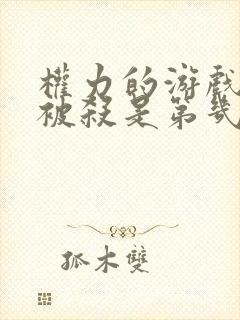 權力的游戲
被殺是第幾
孤木雙